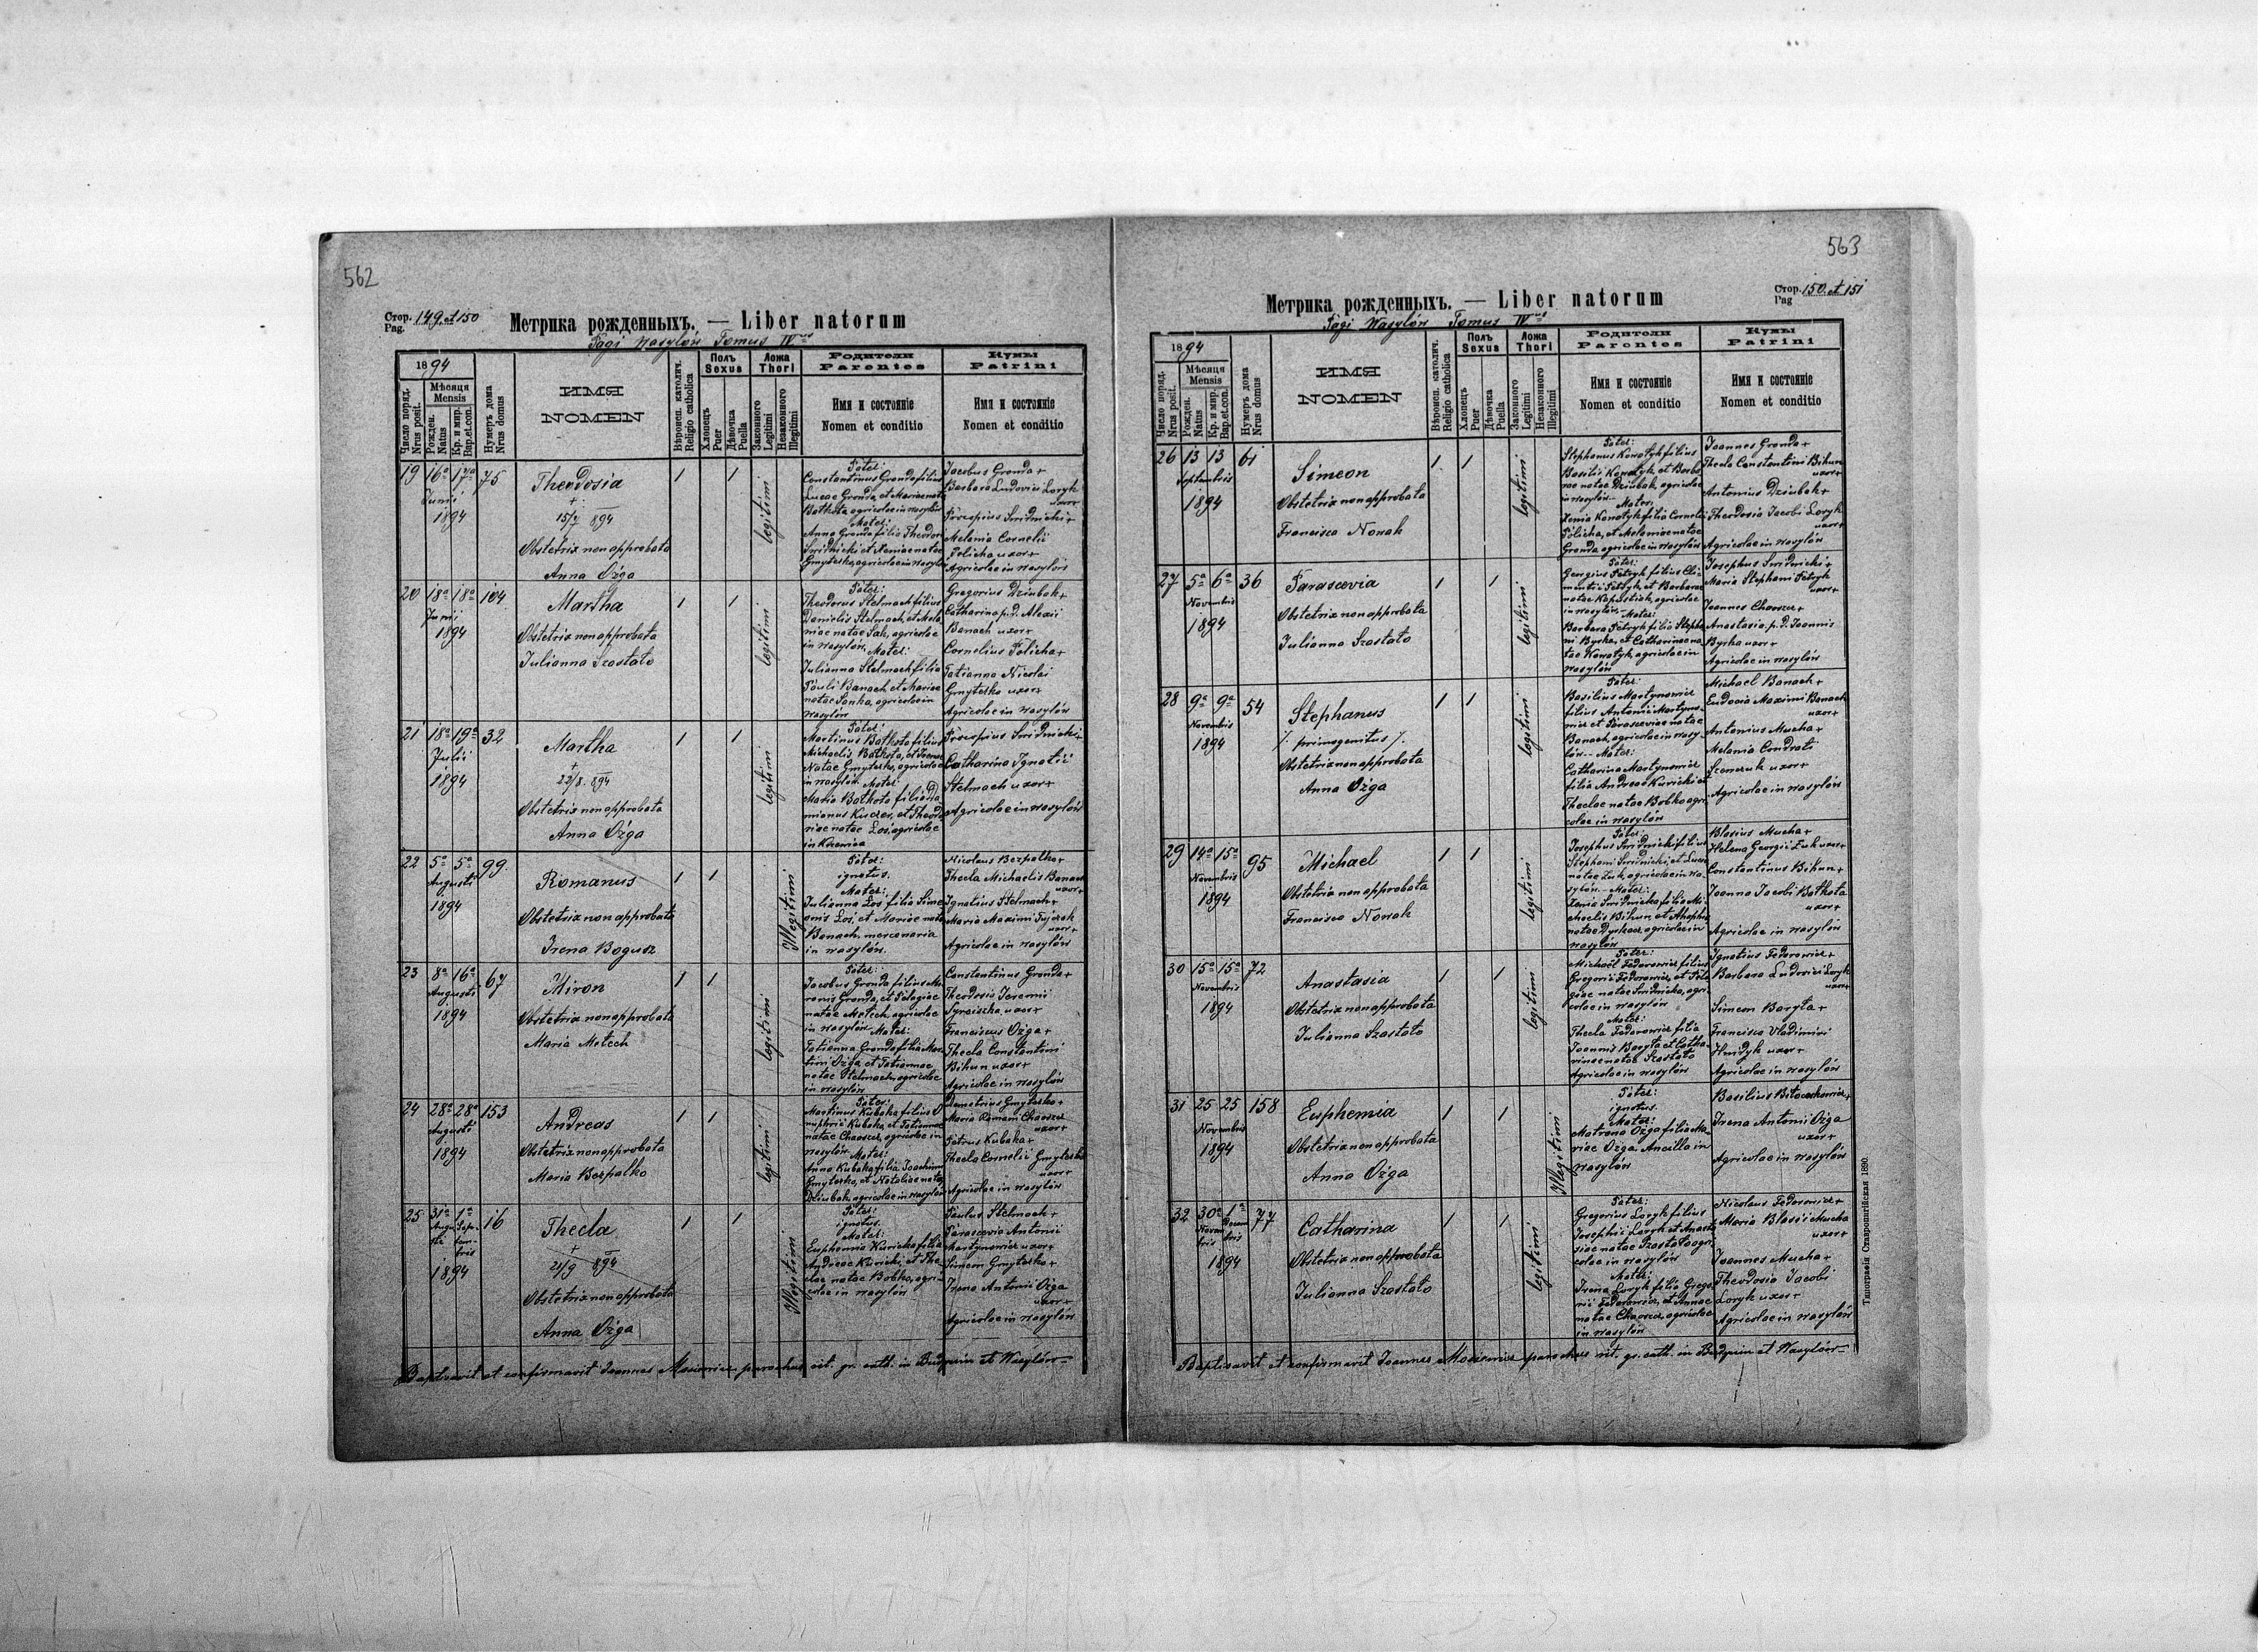 562
Стор. 149 et 150
Pag.
Метрика рожденныхъ. — Liber natorum
Pagi Wasylów Tomus IV
1894
Число поряд.
Nrus posit.
Мѣсяця
Mensis
Рожден.
Natus
Кр. и мир.
Bap.et.con.
Нумеръ дома
Nrus domus
ИМЯ
NOMEN
Вѣроисп. католич.
Religio catholica
Полъ
Sexus
Хлопецъ
Puer
Дѣвочка
Puella
Ложа
Thori
Законного
Legitimi
Незаконного
Illegitimi
Родители
Parentes
Имя и состоянiе
Nomen et conditio
Кумы
Patrini
Имя и состоянiе
Nomen et conditio
19 16a 17a 75
Junii
1894
Theodosia
+
15/7 894
Obstetrix non approbata
Anna Ożga
1 1
legitimi
Pater:
Constantinus Gronda filius
Lucae Gronda, et Mariae natae
Bathota agricolae in Wasylów
Mater:
Anna Gronda filia Theodori
Smidnicki et Xeniae natae
Gmyterko, agricolae in Wasylów
Jacobus Gronda +
Barbara Ludovici Loryk
uxor +
Procopius Smidnicki +
Melania Cornelii
Policha uxor +
Agricolae in Wasylów
20 18a 18a 104
Junii
1894
Martha
Obstetrix non approbata
Julianna Szostato
1 1
legitimi
Pater:
Theodorus Stelmach filius
Danielis Stelmach, et Mela
niae natae Sak, agricolae
in Wasylów. Mater:
Julianna Stelmach filia
Pauli Banach et Mariae
natae Sanka, agricolae in
Wasylów
Gregorius Dziubak +
Catharina p.d. Alexii
Banach uxor +
Cornelius Policha +
Tatianna Nicolai
Gmyterko uxor +
Agricolae in Wasylów
21 18a 19a 32
Julii
1894
Martha
+
22/8. 894
Obstetrix non approbata
Anna Ożga
1 1
legitimi
Pater:
Martinus Bathota filius
Michaelis Bathota, et Irenae
Natae Gmyterko, agricolae
in Wasylów. Mater:
Maria Bathota, filia Da
mianus Kucher, et Theodo
riae natae Los, agricolae
in
Procopius Smidnicki +
Catharina Ignatii
Stelmach uxor +
Agricolae in Wasylów
22 5a 5a 99.
Augusti
1894
Romanus
Obstetrix non approbata
Irena Bogusz
1 1
Illegitimi
Pater:
ignotus.
Mater:
Julianna Los filia Sime
onis Los, et Mariae natae
Banach, mercenaria
in Wasylów.
Nicolaus Bezpalko +
Thecla Michaelis Banach
uxor +
Ignatius Stelmach +
Maria Maximi
uxor +
Agricolae in Wasylów
23 8a 16a 67
Augusti
1894
Miron
Obstetrix non approbata
Maria Metech
1 1
legitimi
Pater:
Jacobus Gronda filius Mi
ronis Gronda, et Pelagiae
natae Metech, agricolae
in Wasylów Mater:
Tatianna Gronda filia Mar
tini Ożga, et Tatiannae
natae Stelmach agricolae
in Wasylów
Constantinus Gronda +
Theodosia Jeremii
uxor +
Franciscus Ożga +
Thecla Constantini
Bihun uxor +
Agricolae in Wasylów
24 28a 28a 153
Augusti
1894
Andreas
Obstetrix non approbata
Maria Bezpalko
1 1
legitimi
Pater:
Martinus Kubaka filius O
nuphrii Kubaka, et Tatiannae
natae Chaoszcz, agricolae in
Wasylów Mater:
Anna Kubaka filia Joachimi
Gmyterko, et Nataliae natae
Dziubak, agricolae in Wasylów
Demetrius Gmyterko +
Maria Romani Chaoszcz
uxor +
Petrus Kubaka +
Thecla Cornelii Gmyterko
uxor +
Agricolae in Wasylów
25 31a 1a 16
Augu Sep
sti tem
bris
1894
Thecla
+
21/9 894
Obstetrix non approbata
Anna Ożga
1 1
Illegitimi
Pater:
ignotus.
Mater:
Euphemia Kuricka filia
Andreae Kuricki, et The
clae natae Bobko, agri
colae in Wasylów
Paulus Stelmach +
Parascevia Antonii
Martynowicz uxor +
Simeon Gmyterko +
Irena Antonii Ożga
uxor +
Agricolae in Wasylów
Baptisavit et confirmavit Joannes parochus rit. gr. cath. in et Wasylów
563
Стор. 150 et 151
Pag
Метрика рожденныхъ. — Liber natorum
Pagi Wasylów Tomus IV
1894
Число поряд.
Nrus posit.
Мѣсяця
Mensis
Рожден.
Natus
Кр. и мир.
Bap.et.con.
Нумеръ дома
Nrus domus
ИМЯ
NOMEN
Вѣроисп. католич.
Religio catholica
Полъ
Sexus
Хлопецъ
Puer
Дѣвочка
Puella
Ложа
Thori
Законного
Legitimi
Незаконного
Illegitimi
Родители
Parentes
Имя и состоянiе
Nomen et conditio
Кумы
Patrini
Имя и состоянiе
Nomen et conditio
26 13 13 61
Septembris
1894
Simeon
Obstetrix non approbata
Francisca Nowak
1 1
legitimi
Pater:
Stephanus Konotyk filius
Basilii Konotyk, et Barba
rae natae Dziubak, agricolae
in Wasylów Mater:
Xenia Konotyk filia Cornelii
Policha, et Melaniae natae
Gronda, agricolae in Wasylów
Joannes Gronda +
Thecla Constantini Bihun
uxor +
Antonius Dziubak +
Theodosia Jacobi Loryk
uxor +
Agricolae in Wasylów
27 5a 6a 36
Novembris
1894
Parascevia
Obstetrix non approbata
Julianna Szostato
1 1
legitimi
Pater:
Georgius Petryk filius Cle
mentii Petryk, et Barbarae
natae Kapustiak, agricolae
in Wasylów. Mater:
Barbara Petryk filia Stepha
ni Byrka, et Catharinae na
tae Konotyk, agricolae in
Wasylów
Josephus Smidnicki +
Maria Stephani Petryk
uxor +
Joannes Chaoszcz +
Anastasia p.d. Joannis
Byrka uxor +
Agricolae in Wasylów
28 9a 9a 54
Novembris
1894
Stephanus
/. primogenitus /.
Obstetrix non approbata
Anna Ożga
1 1
legitimi
Pater:
Basilius Martynowicz
filius Antonii Martyno
wicz et Parasceviae natae
Banach, agricolae in Wasy
lów Mater:
Catharina Martynowicz
filia Andreae Kuricki et
Theclae natae Bobko agri
colae in Wasylów
Michael Banach +
Eudocia Maximi Banach
uxor +
Antonius Mucha +
Melania Condrati
Szewczuk uxor +
Agricolae in Wasylów
29 14a 15a 95
Novembris
1894
Michael
Obstetrix non approbata
Francisca Nowak
1 1
legitimi
Pater:
Josephus Smidnicki filius
Stephani Smidnicki, et Luciae
natae Zuk, agricolae in Wa
sylów. Mater:
Xenia Smidnicka filia Mi
chaelis Bihun, et Ahaphiae
natae agricolae in
Wasylów
Blasius Mucha +
Helena Georgii Zuk uxor +
Constantinus Bihun +
Joanna Jacobi Bathota
uxor +
Agricolae in Wasylów
30 15a 15a 72
Novembris
1894
Anastasia
Obstetrix non approbata
Julianna Szostato
1 1
legitimi
Pater:
Michael Fedorowicz filius
Gregorii Fedorowicz, et Pela
giae natae Smidnicka, agri
colae in Wasylów
Mater:
Thecla Fedorowicz filia
Joannis Baryta et Catha
rinae natae Szostato
Agricolae in Wasylów
Ignatius Fedorowicz +
Barbara Ludovici Loryk
uxor +
Simeon Baryta +
Francisca Vladimiri
Hnidyk uxor +
Agricolae in Wasylów
31 25 25 158
Novembris
1894
Euphemia
Obstetrix non approbata
Anna Ożga
1 1
Illegitimi
Pater:
ignotus.
Mater:
Matrona Ożga filia Ma
riae Ożga. Ancilla in
Wasylów
Basilius
Irena Antonii Ożga
uxor +
Agricolae in Wasylów
32 30a 1a 77
Novem Decem
bris bris
1894
Catharina
Obstetrix non approbata
Julianna Szostato
1 1
legitimi
Pater:
Gregorius Loryk filius
Josephi Loryk et Anasta
siae natae Szostato agri
colae in Wasylów
Mater:
Irena Loryk filia Grego
rii Fedorowicz, et Annae
natae Chaoszcz, agricolae
in Wasylów
Nicolaus Fedorowicz +
Maria Blasii Mucha
uxor +
Joannes Mucha +
Theodosia Jacobi
Loryk uxor +
Agricolae in Wasylów
Baptisavit et confirmavit Joannes parochus rit. gr. cath. in et Wasylów
Типографiя Ставропигiйская 1890.